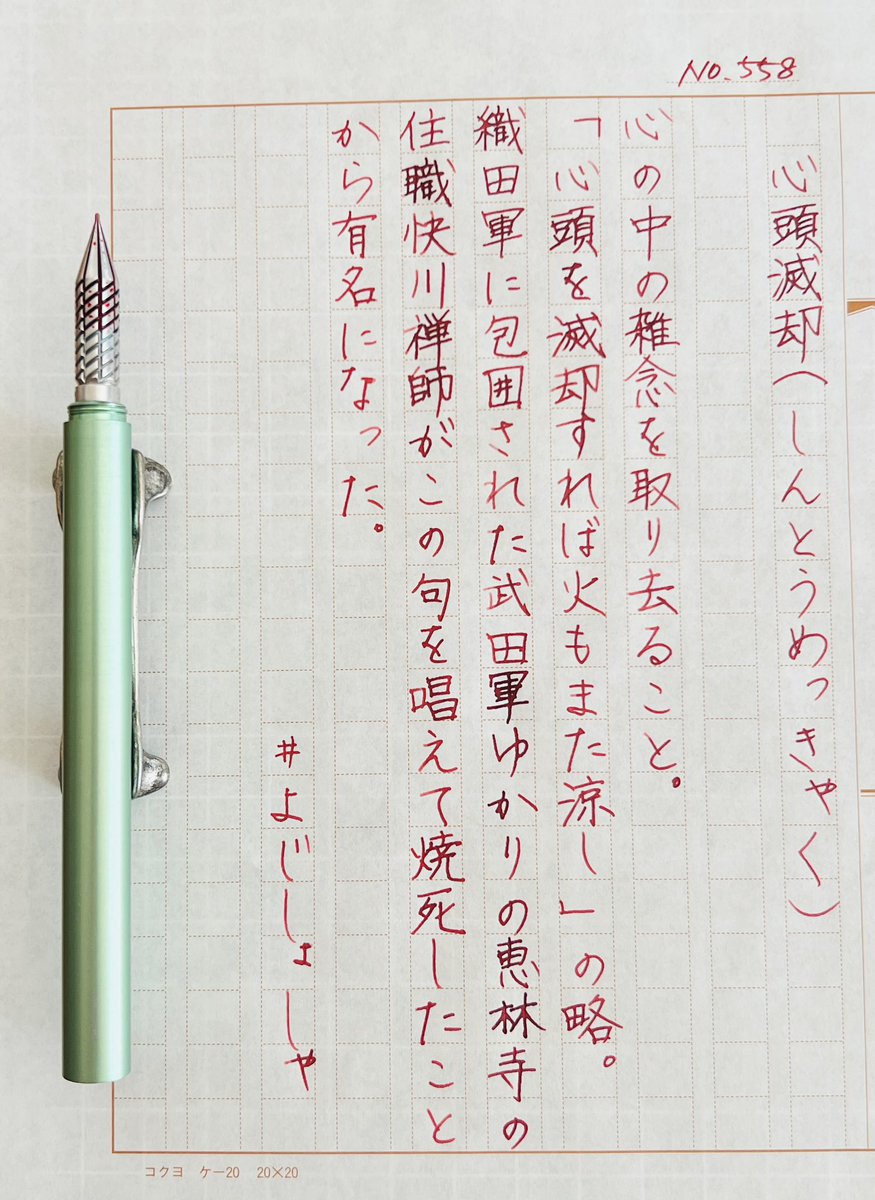 No.558
心頭滅却(しんとうめっきゃく)
心の中の雑念を取り去ること。
「心頭を滅却すれば火もまた涼し」の略。
織田軍に包囲された武田軍ゆかりの恵林寺の
住職快川禅師がこの句を唱えて焼死したこと
から有名になった。
#よじしょしゃ
コクヨ ケー20 20×20